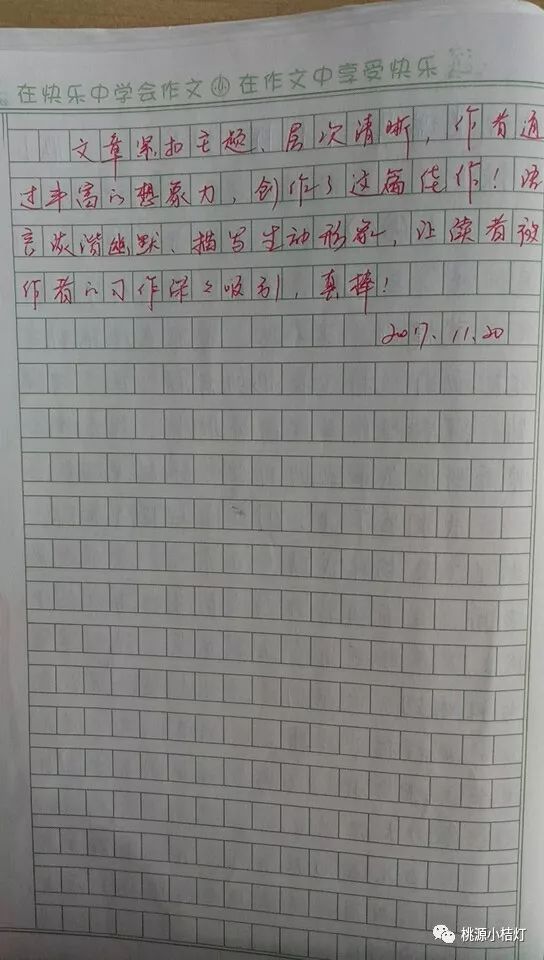 在快乐中学会作文 小 在作文中享受快乐
文章紧扣主题、层次清晰，作者通
过丰富的想象力，创作了这篇佳作！语
言诙谐幽默、描写生动形象，让读者被
作者的习作深深吸引，真棒！
2017.11.20
桃源小桔灯